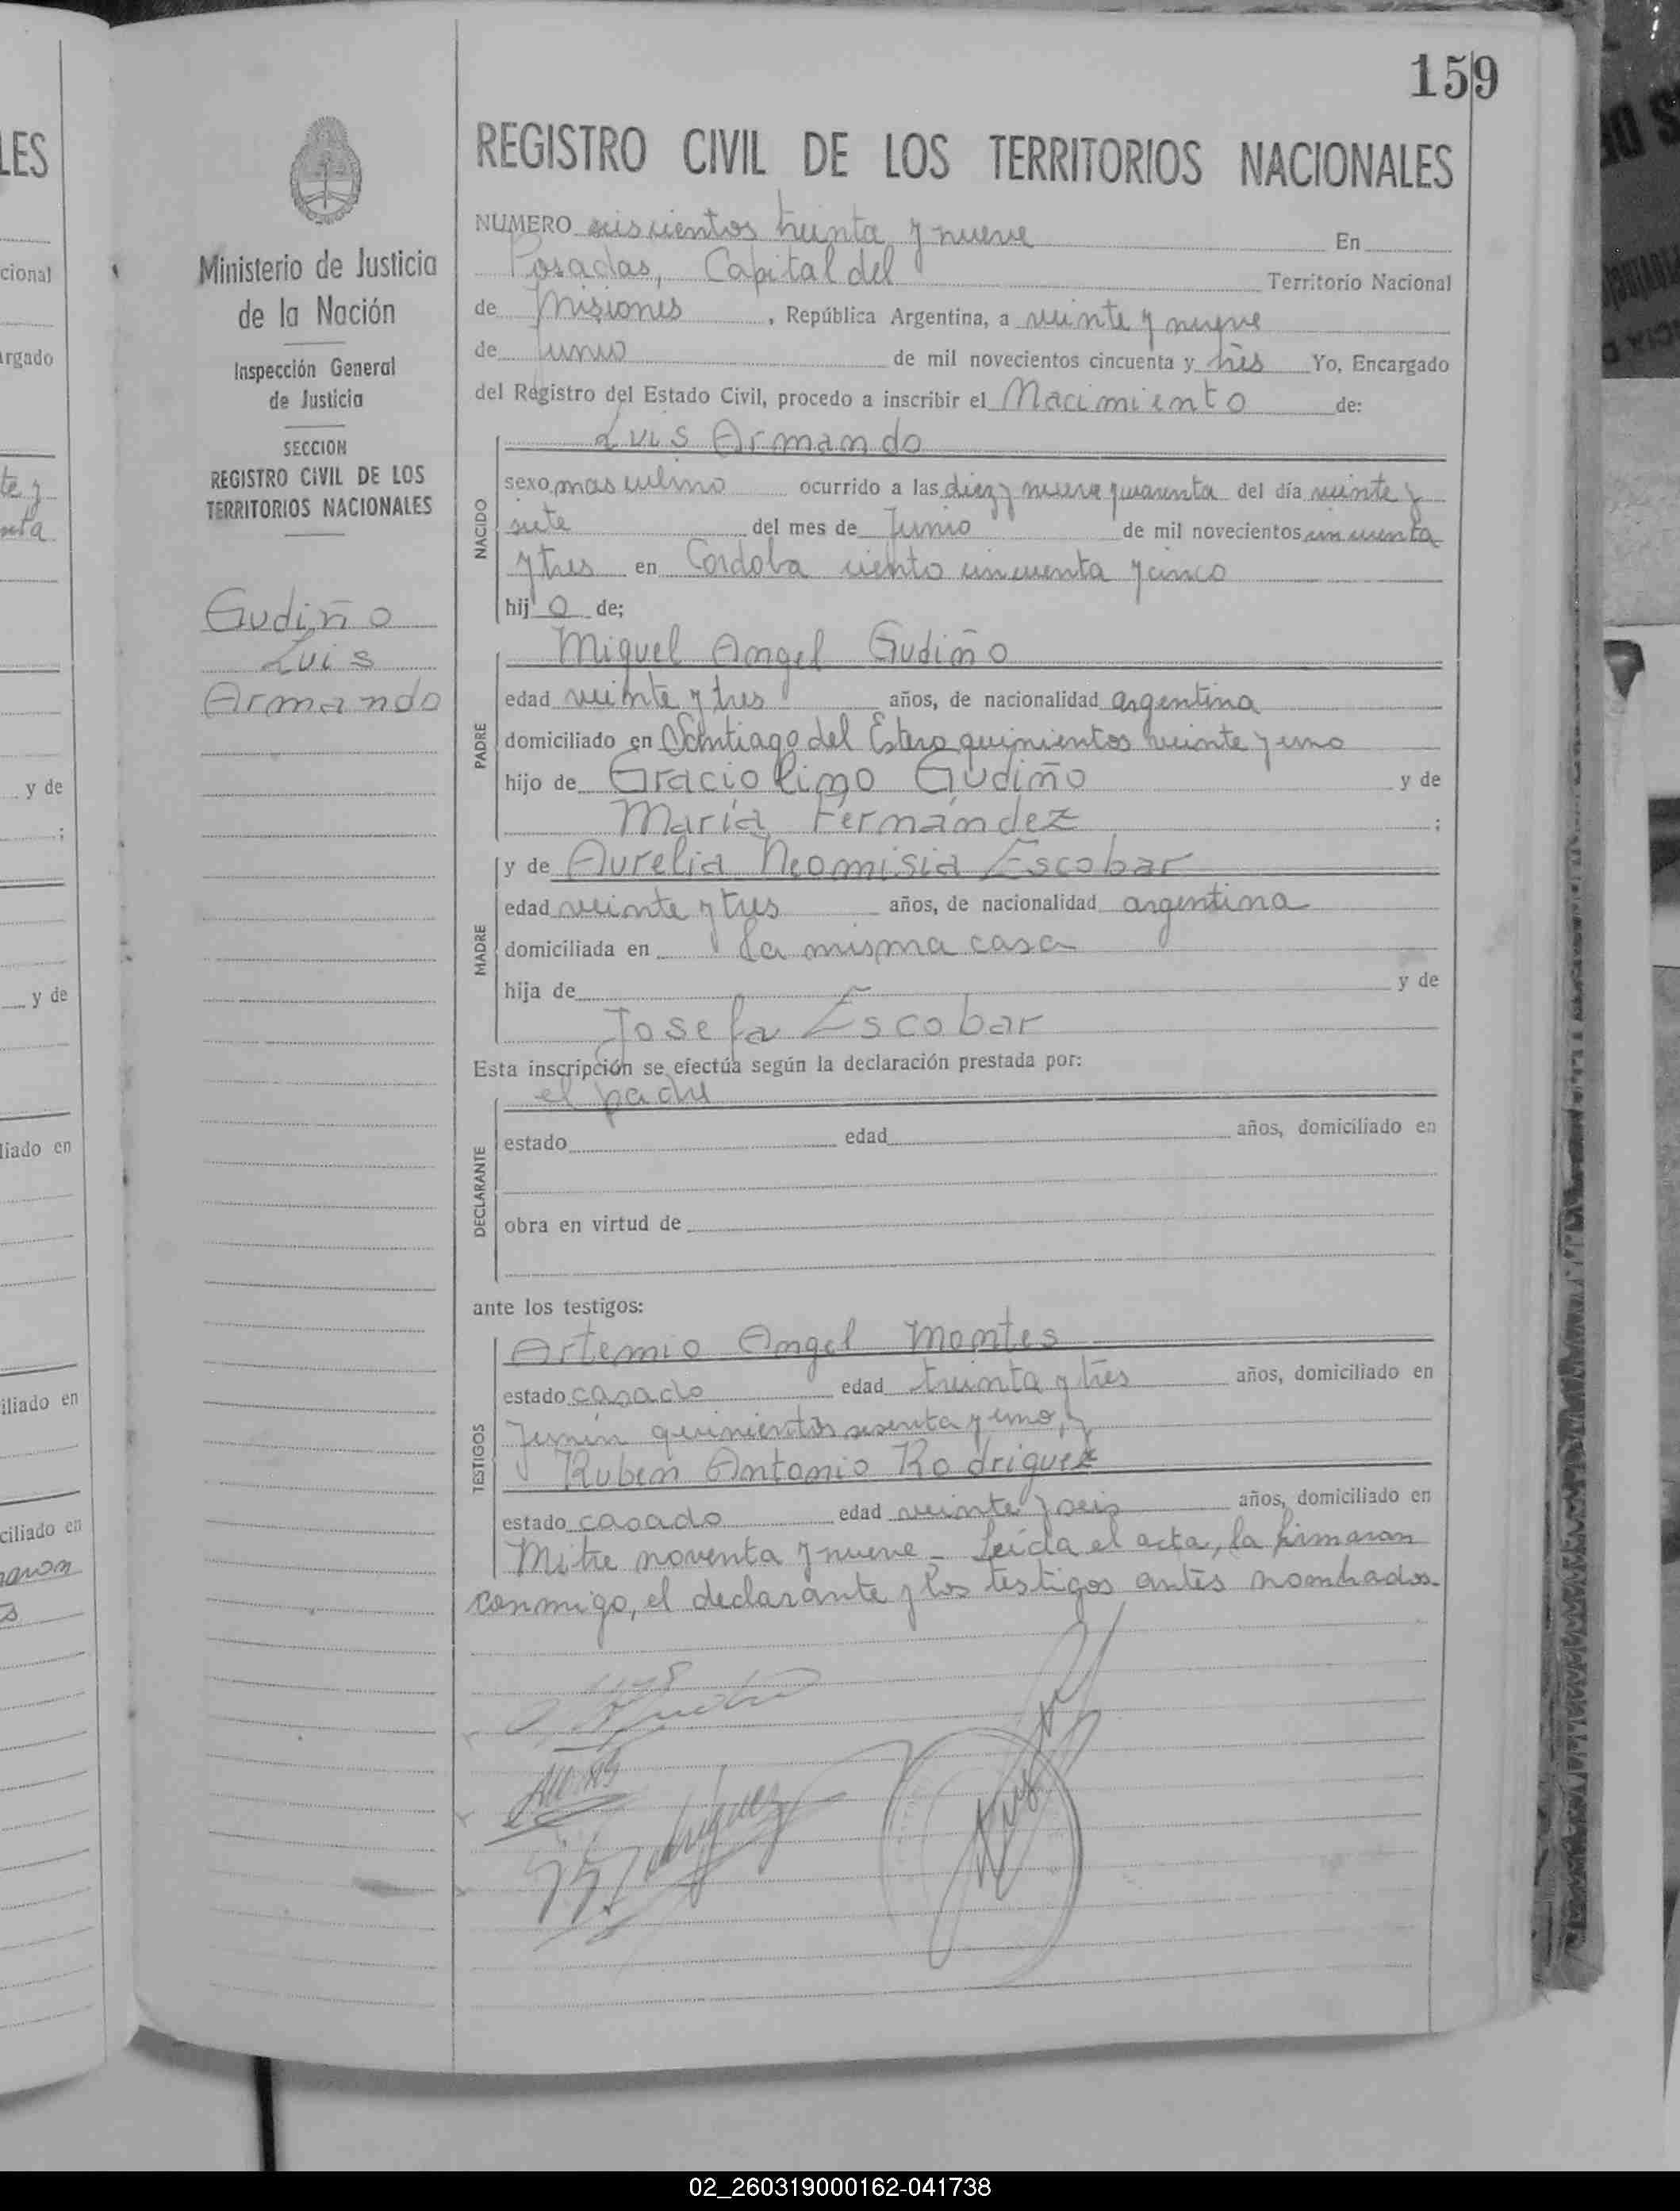 159
LES
REGISTRO CIVIL DE LOS TERRITORIOS NACIONALES
Ministerio de Justicia
de la Nación
Inspección General
de Justicia
SECCION
REGISTRO CIVIL DE LOS
TERRITORIOS NACIONALES
Gudiño
Luis
Armando
NUMERO seiscientos treinta y nueve En
Posadas, Capital del Territorio Nacional
de Misiones, República Argentina, a veinte y nueve
de Junio de mil novecientos cincuenta y tres Yo, Encargado
del Registro del Estado Civil, procedo a inscribir el Nacimiento de:
Luis Armando
NACIDO
sexo masculino ocurrido a las diez y nueve y cuarenta del día veinte y
siete del mes de Junio de mil novecientos cincuenta
y tres en Córdoba ciento cincuenta y cinco
hijo de;
Miguel Angel Gudiño
PADRE
edad veinte y tres años, de nacionalidad argentina
domiciliado en Santiago del Estero quinientos veinte y uno
hijo de Graciolino Gudiño y de
María Fernández ;
MADRE
y de Aurelia Neomisia Escobar
edad veinte y tres años, de nacionalidad argentina
domiciliada en la misma casa
hija de y de
Josefa Escobar
Esta inscripción se efectúa según la declaración prestada por:
el padre
DECLARANTE
estado edad años, domiciliado en
obra en virtud de
ante los testigos:
TESTIGOS
Artemio Angel Montes
estado casado edad treinta y tres años, domiciliado en
Junín quinientos sesenta y uno, y
Ruben Antonio Rodriguez
estado casado edad veinte y seis años, domiciliado en
Mitre noventa y nueve - Leída el acta, la firmaran
conmigo, el declarante y los testigos antes nombrados.
02_260319000162-041738